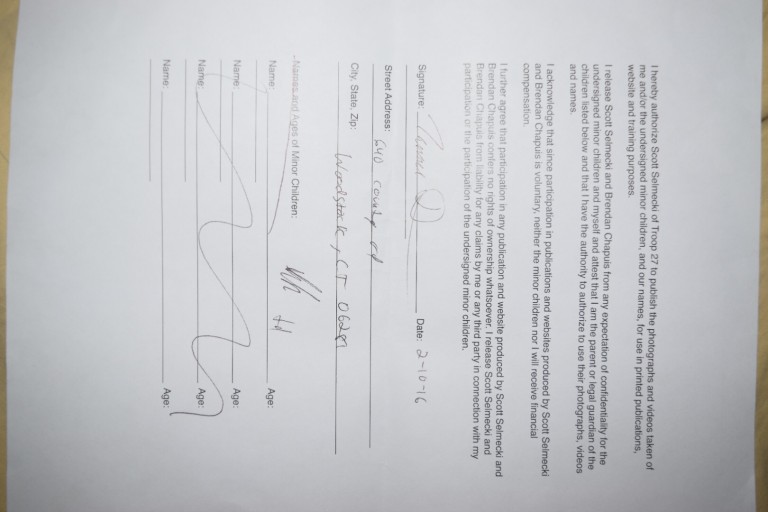 I hereby authorize Scott Selmecki of Troop 27 to publish the photographs and videos taken of
me and/or the undersigned minor children, and our names, for use in printed publications,
website and training purposes.
I release Scott Selmecki and Brendan Chapuis from any expectation of confidentiality for the
undersigned minor children and myself and attest that I am the parent or legal guardian of the
children listed below and that I have the authority to authorize to use their photographs, videos
and names.
I acknowledge that since participation in publications and websites produced by Scott Selmecki
and Brendan Chapuis is voluntary, neither the minor children nor I will receive financial
compensation.
I further agree that participation in any publication and website produced by Scott Selmecki and
Brendan Chapuis confers no rights of ownership whatsoever. I release Scott Selmecki and
Brendan Chapuis from liability for any claims by me or any third party in connection with my
participation or the participation of the undersigned minor children.
Signature: Date: 2-10-16
Street Address: 640 county rd
City, State, Zip: Woodstock, CT 06281
Names and Ages of Minor Children:
Name: Age:
Name: Age:
Name: Age:
Name: Age: